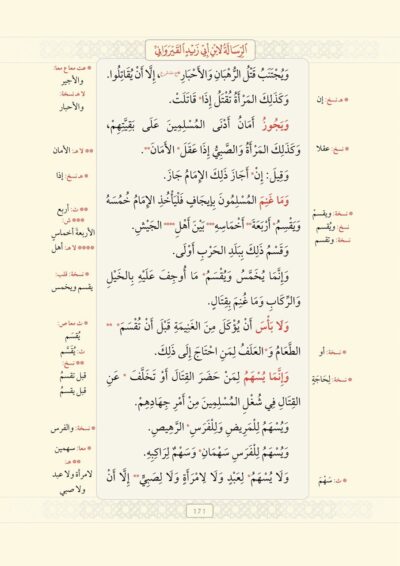 الرِّسَالَةُ لِابْنِ أَبِي زَيْدٍ الْقَيْرَوَانِيِّ
وَيُجْتَنَبُ قَتْلُ الرُّهْبَانِ وَالْأَحْبَارِ، إِلَّا أَنْ يُقَاتِلُوا.
وَكَذَلِكَ الْمَرْأَةُ تُقْتَلُ إِذَا * قَاتَلَتْ.
وَيَجُوزُ أَمَانُ أَدْنَى الْمُسْلِمِينَ عَلَى بَقِيَّتِهِمْ،
وَكَذَلِكَ الْمَرْأَةُ وَالصَّبِيُّ إِذَا عَقَلَ * الْأَمَانَ **.
وَقِيلَ: إِنْ * أَجَازَ ذَلِكَ الْإِمَامُ جَازَ.
وَمَا غَنِمَ الْمُسْلِمُونَ بِإِيجَافٍ فَلْيَأْخُذِ الْإِمَامُ خُمُسَهُ
وَيَقْسِمُ * أَرْبَعَةَ ** أَخْمَاسِهِ *** بَيْنَ أَهْلِ **** الْجَيْشِ.
وَقَسْمُ ذَلِكَ بِبَلَدِ الْحَرْبِ أَوْلَى.
وَإِنَّمَا يُخَمَّسُ وَيُقْسَمُ * مَا أُوجِفَ عَلَيْهِ بِالْخَيْلِ
وَالرِّكَابِ وَمَا غُنِمَ بِقِتَالٍ.
وَلَا بَأْسَ أَنْ يُؤْكَلَ مِنَ الْغَنِيمَةِ قَبْلَ أَنْ تُقْسَمَ * **
الطَّعَامُ وَ * الْعَلَفُ لِمَنِ احْتَاجَ إِلَى ذَلِكَ.
وَإِنَّمَا يُسْهَمُ لِمَنْ حَضَرَ الْقِتَالَ أَوْ تَخَلَّفَ * عَنِ
الْقِتَالِ فِي شُغْلِ الْمُسْلِمِينَ مِنْ أَمْرِ جِهَادِهِمْ.
وَيُسْهَمُ لِلْمَرِيضِ وَلِلْفَرَسِ * الرَّهِيصِ.
وَيُسْهَمُ لِلْفَرَسِ سَهْمَانِ * وَسَهْمٌ لِرَاكِبِهِ.
وَلَا يُسْهَمُ * لِعَبْدٍ وَلَا لِامْرَأَةٍ وَلَا لِصَبِيٍّ ** إِلَّا أَنْ
* نسخ: إن
* نسخ: عقلا
* نسخة: ويقسمْ
نسخ: ويُقسم
نسخة: وتقسم
* نسخة: أو
* نسخة: لِحَاجَةٍ
* ث: سَهْمَ
والأجير
لا هـ نسخة:
والأحبار
** لا هـ: الأمان
* هـ نسخ: إذا
** ث: أربع
الأربعة أخماسٍ
**** لا هـ: أهل
* نسخة: قلب:
يقسم ويخمس
يُقَسم
ث: يُقَسَّم
** نسخ:
قبل تقسمُ
قبل يقسمُ
* نسخة: والفرس
* معا: سهمين
لامرأة ولا عبد
ولا صبي
171